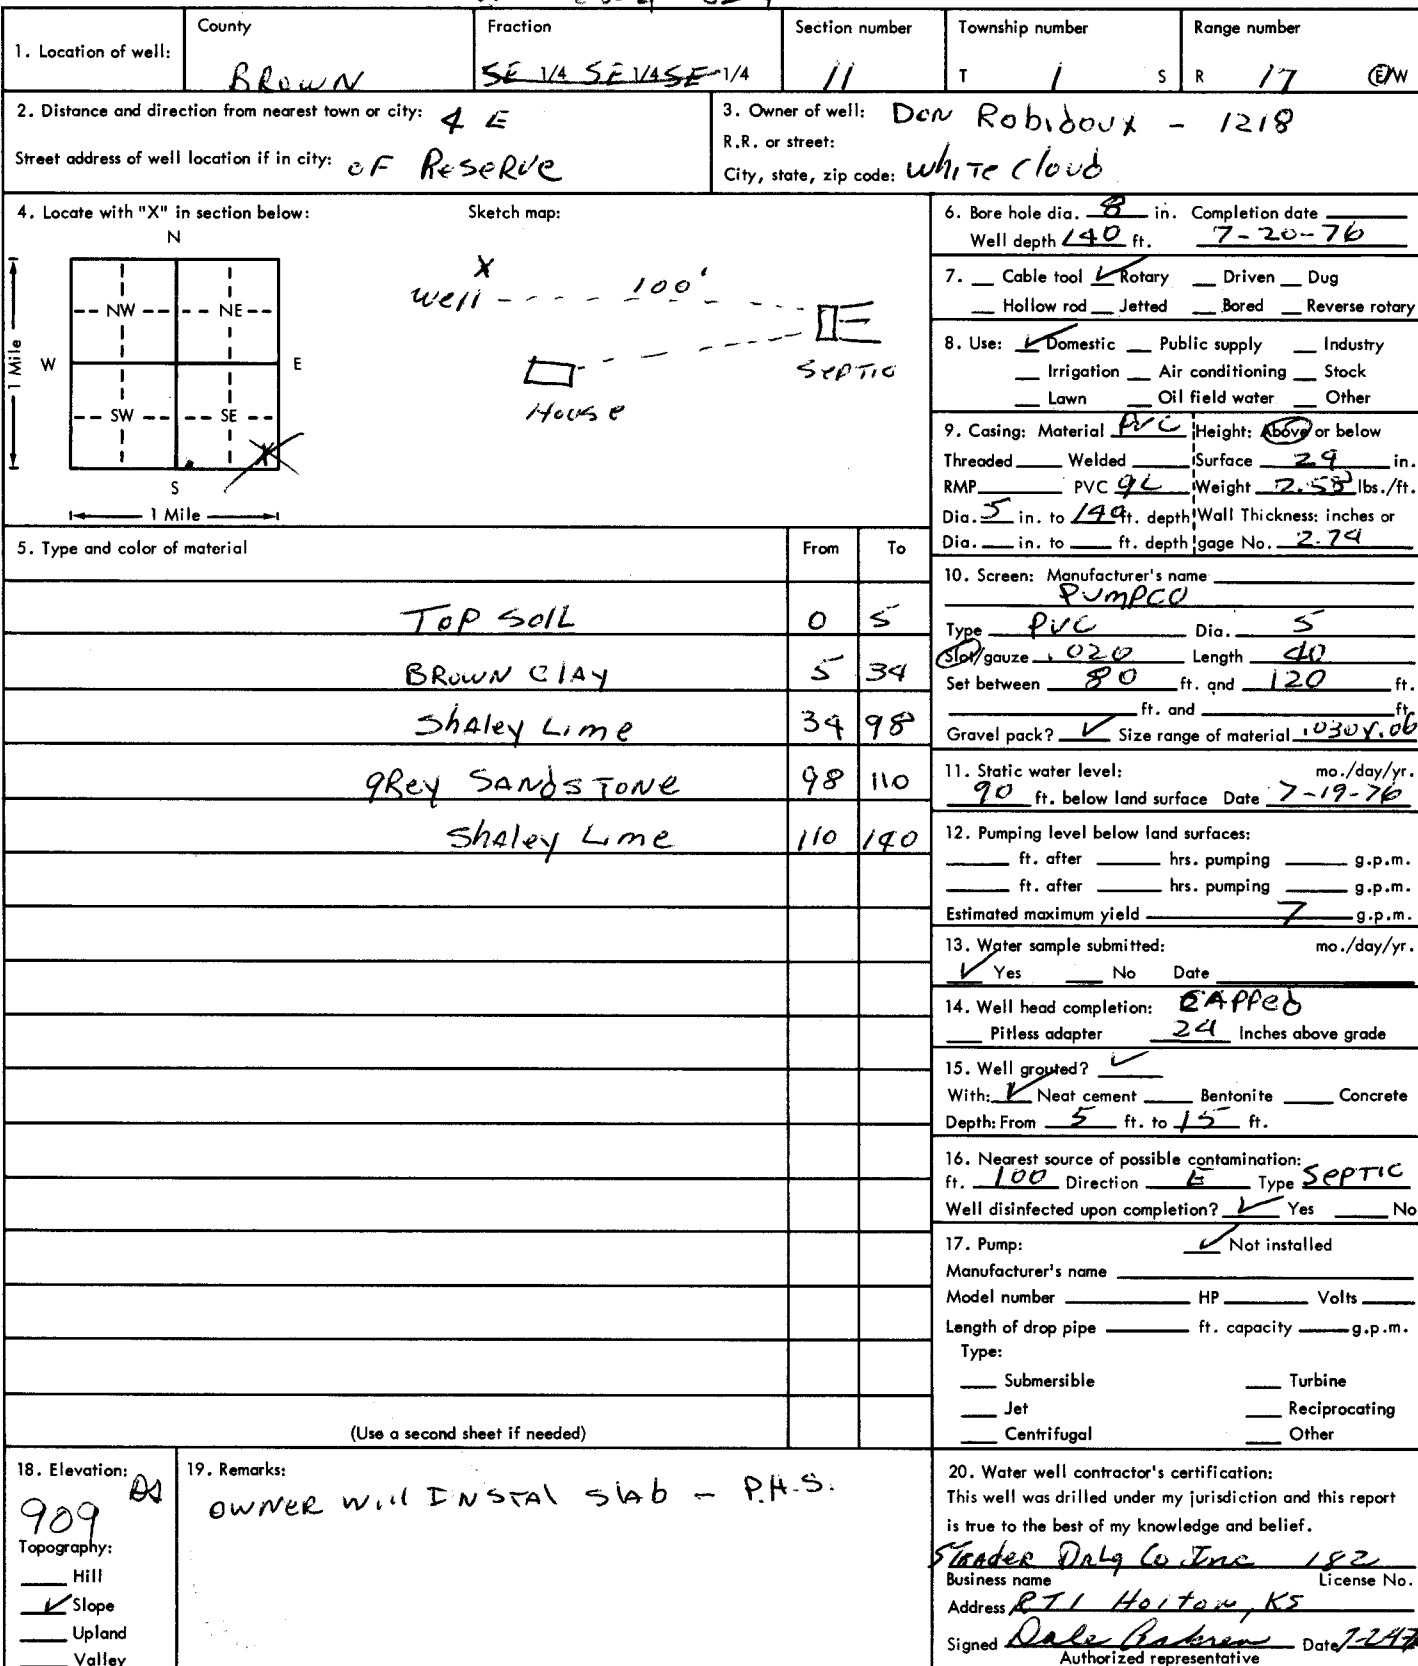 County Fraction Section number Township number Range number
1. Location of well: BROWN SE 1/4 SE 1/4 SE 1/4 11 T 1 S R 17 E/W
2. Distance and direction from nearest town or city: 4 E
Street address of well location if in city: OF RESERVE
3. Owner of well: Don Robidoux - 1218
R.R. or street:
City, state, zip code: White Cloud
4. Locate with "X" in section below:
Sketch map:
N
NW NE
W E
SW SE
X
S
1 Mile
1 Mile
X
Well 100'
Septic
House
5. Type and color of material From To
Top Soil 0 5
Brown Clay 5 34
Shaley Lime 34 98
Grey Sandstone 98 110
Shaley Lime 110 140
(Use a second sheet if needed)
6. Bore hole dia. 8 in. Completion date
Well depth 140 ft. 7-20-76
7. Cable tool ✓ Rotary Driven Dug
Hollow rod Jetted Bored Reverse rotary
8. Use: ✓ Domestic Public supply Industry
Irrigation Air conditioning Stock
Lawn Oil field water Other
9. Casing: Material PVC Height: Above or below
Threaded Welded Surface 24 in.
RMP PVC GL Weight lbs./ft.
Dia. 5 in. to 140 ft. depth Wall Thickness: inches or
Dia. in. to ft. depth gage No. 2.74
10. Screen: Manufacturer's name
PUMPCO
Type PVC Dia. 5
Slot/gauze .020 Length 40
Set between 80 ft. and 120 ft.
ft. and ft.
Gravel pack? ✓ Size range of material
11. Static water level: mo./day/yr.
90 ft. below land surface Date 7-19-76
12. Pumping level below land surfaces:
ft. after hrs. pumping g.p.m.
ft. after hrs. pumping g.p.m.
Estimated maximum yield 7 g.p.m.
13. Water sample submitted: mo./day/yr.
✓ Yes No Date
14. Well head completion: CAPPED
Pitless adapter 24 Inches above grade
15. Well grouted? ✓
With: ✓ Neat cement Bentonite Concrete
Depth: From 5 ft. to 15 ft.
16. Nearest source of possible contamination:
ft. 100 Direction E Type Septic
Well disinfected upon completion? ✓ Yes No
17. Pump: ✓ Not installed
Manufacturer's name
Model number HP Volts
Length of drop pipe ft. capacity g.p.m.
Type:
Submersible Turbine
Jet Reciprocating
Centrifugal Other
18. Elevation:
909
Topography:
Hill
✓ Slope
Upland
Valley
19. Remarks:
OWNER Will INSTAL Slab - P.H.S.
20. Water well contractor's certification:
This well was drilled under my jurisdiction and this report
is true to the best of my knowledge and belief.
Strader Drlg Co Inc 182
Business name License No.
Address RT1 Horton, KS
Signed Dale Date
Authorized representative